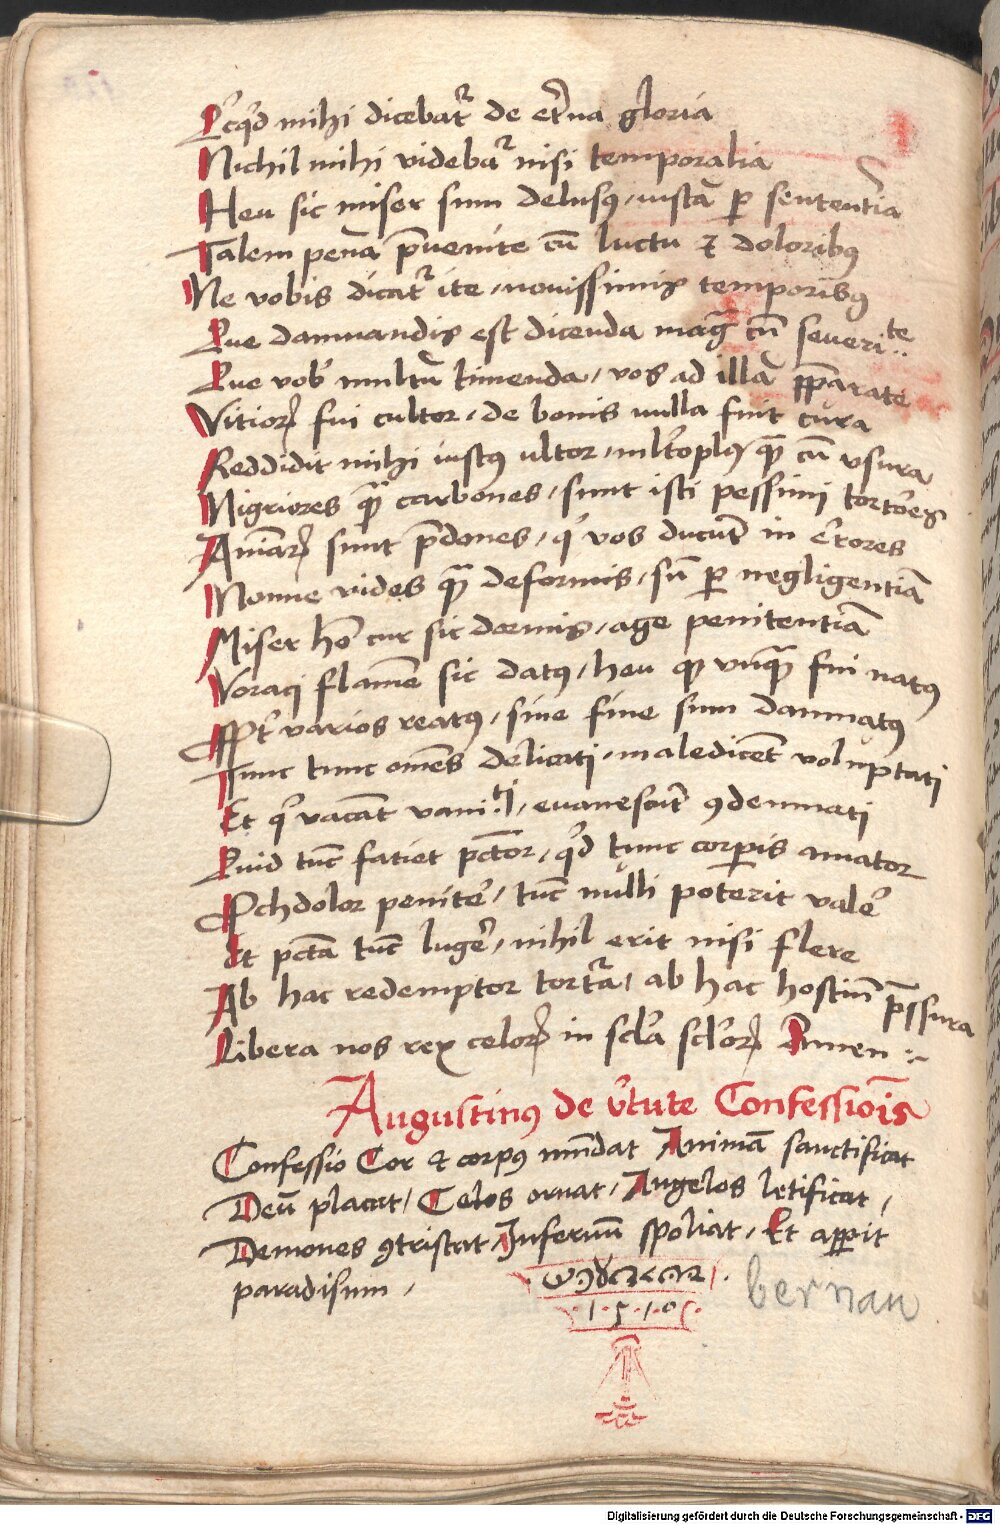 Qcq͛d mihi dicebat᷑ de et͛na gloria
Nichil mihi videbat᷑ nisi temporalia
Heu sic miser sum delusꝰ / iusta ꝑ sententia
Talem penā p̄uenite cū luctu ⁊ doloribꝰ
Ne vobis dicat᷑ ite / nouissimis temporibꝰ
Que damnandis est dicenda mag̅ cū seuerite
Que vob̕ multū timenda / vos ad illā p̄parate
Vitioꝝ fui cultor / de bonis nulla fuit cura
Reddidit mihi iustꝰ ultor / ml̕toplꝰ qᷓ cū vsura
Nigriores qᷓ carbones / sunt isti pessimi tortōes
Aīarꝝ sunt p̄dones / q̕ vos ducūt in er̕rores
Nonne vides qᷓ deformis / sū ꝑ negligentiā
Miser hō cur sic dormis / age penitentiā
Voraci flamē sic datꝰ / heu ꝙ vnqᷓ fui natus
Ppt̕ varios reatꝰ / sine fine sum damnatꝰ
Tunc tunc om̄es delicati / maledicēt voluptati
Et q̕ vacāt vani.ti / euanescūt ꝯdemnati
Quid tūc fatiet pctōr / q̕d tunc corꝑis amator
Och dolor penite͛ / tūc nulli poterit vale͛
Et pctā tūc luge͛ / nihil erit nisi flere
Ab hac redemptor tort᷑a / ab hac hostiū p̄ssura
Libera nos rex celoꝝ in scl̕a scl̕oꝝ Amen :~
Augustinꝰ de v͛tute Confessiōis
Confessio Cor ⁊ corpꝰ mūdat Animā sanctificat
Deū placat / Celos ornat / Angelos letificat /
Demones ꝯtristat / Infernū spoliat / Et aꝑit
paradisum /
bernau
.1.5.1.0.
Digitalisierung gefördert durch die Deutsche Forschungsgemeinschaft - DFG